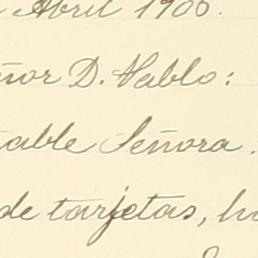 Abril 1900.
ñor D. Pablo:
table Señora.
de tarjetas, ha